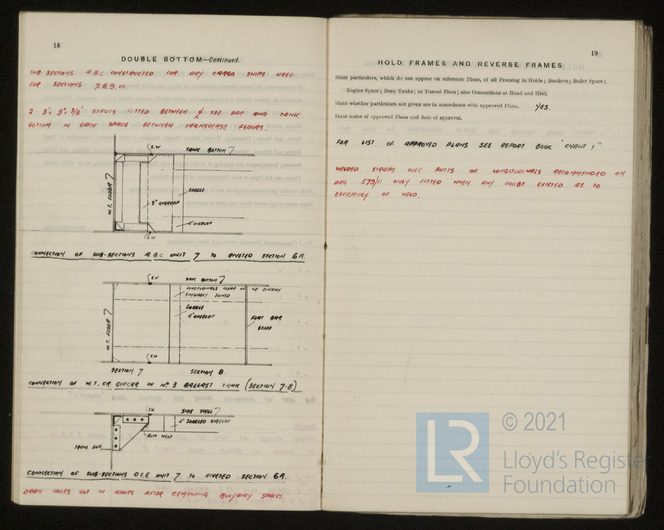 18
DOUBLE BOTTOM—Continued.
SUB SECTIONS A.B.C CONSTRUCTED FOR DRY CARGO SHIPS USED
FOR SECTIONS 7.8.9.10
2 - 3"x 3"x 3/8" FITTED BETWEEN THE BAR AND TANK
BOTTOM IN EACH SPACE BETWEEN TRANSVERSE FLOORS
E.W
TANK BOTTOM 7
W.T. FLOOR 7
JOGGLE
3" OVERLAP
4" OVERLAP
E.W
CONNECTION OF SUB-SECTIONS A.B.C UNIT 7 TO RIVETED SECTION 6A.
E.W
TANK BOTTOM 7
LONGITUDINALS
JOGGLE
4" OVERLAP
W.T. FLOOR 7
FLAT BAR
E.W
SECTION 7
SECTION 8.
CONNECTION OF W.T. CR GIRDER IN No 3 BALLAST TANK (SECTION 7-8)
E.W
SIDE SHELL 7
4" JOGGLED OVERLAP
WELD
CONNECTION OF SUB-SECTIONS D.E UNIT 7 TO RIVETED SECTION 6A.
DRAIN HOLES CUT IN FLOORS AFTER CEMENTING BUOYANCY SPACES.
19
HOLD FRAMES AND REVERSE FRAMES
State particulars, which do not appear on reference Plans, of all Framing in Holds; Bunkers; Boiler Space;
Engine Space; Deep Tanks; at Tunnel Flats; also Connections at Head and Heel.
State whether particulars not given are in accordance with approved Plans. YES.
State name of approved Plans and date of approval.
FOR LIST OF APPROVED PLANS SEE REPORT BOOK "CHANT 1"
WELDED STRAPS OVER BUTTS OF LONGITUDINALS RECOMMENDED ON
DRG 579/11 ONLY FITTED WHEN ANY DOUBT EXISTED AS TO
EFFICIENCY OF WELD.
LR
© 2021
Lloyd's Register
Foundation